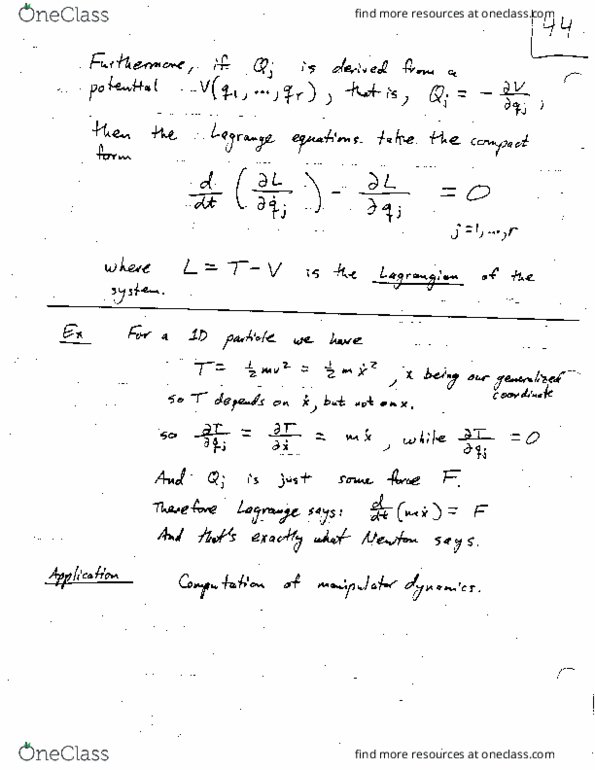 OneClass
find more resources at oneclass.com
44
Furthermore, if Qj is derived from a
potential V(q1, ..., qr), that is, Qj = - ∂V/∂qj ,
then the Lagrange equations take the compact
form
d/dt (∂L/∂q̇j) - ∂L/∂qj = 0
j=1,...,r
where L = T - V is the Lagrangian of the
system.
Ex For a 1D particle we have
T = ½mv² = ½mẋ², x being our generalized
coordinate
so T depends on ẋ, but not on x.
so ∂T/∂q̇j = ∂T/∂ẋ = mẋ, while ∂T/∂qj = 0
And Qj is just some force F.
Therefore Lagrange says: d/dt(mẋ) = F
And that's exactly what Newton says.
Application Computation of manipulator dynamics.
OneClass
find more resources at oneclass.com